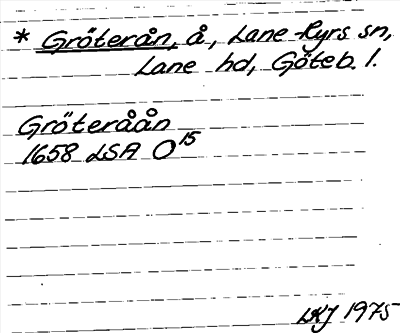 * Gröterån, å, Lane-Ryrs sn,
Lane hd, Göteb. l.
Gröteråån
1658 LSA O15
LKJ 1975